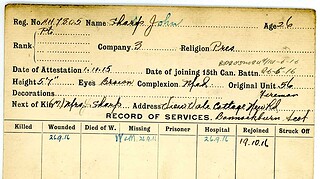 Reg. No. Name Sharp John Age 26
Rank Pte. Company 3 Religion Pres.
Date of Attestation 1.11.15 Date of joining 15th Can. Battn.
Height 5'7" Eyes Brown Complexion Original Unit 56
Decorations Fireman
Next of Kin Mrs. Sharp Address View Vale Cottage New Rd
RECORD OF SERVICES. Bannockburn Scot
Killed Wounded Died of W. Missing Prisoner Hospital Rejoined Struck Off
26.9.16 26.9.16 19.10.16